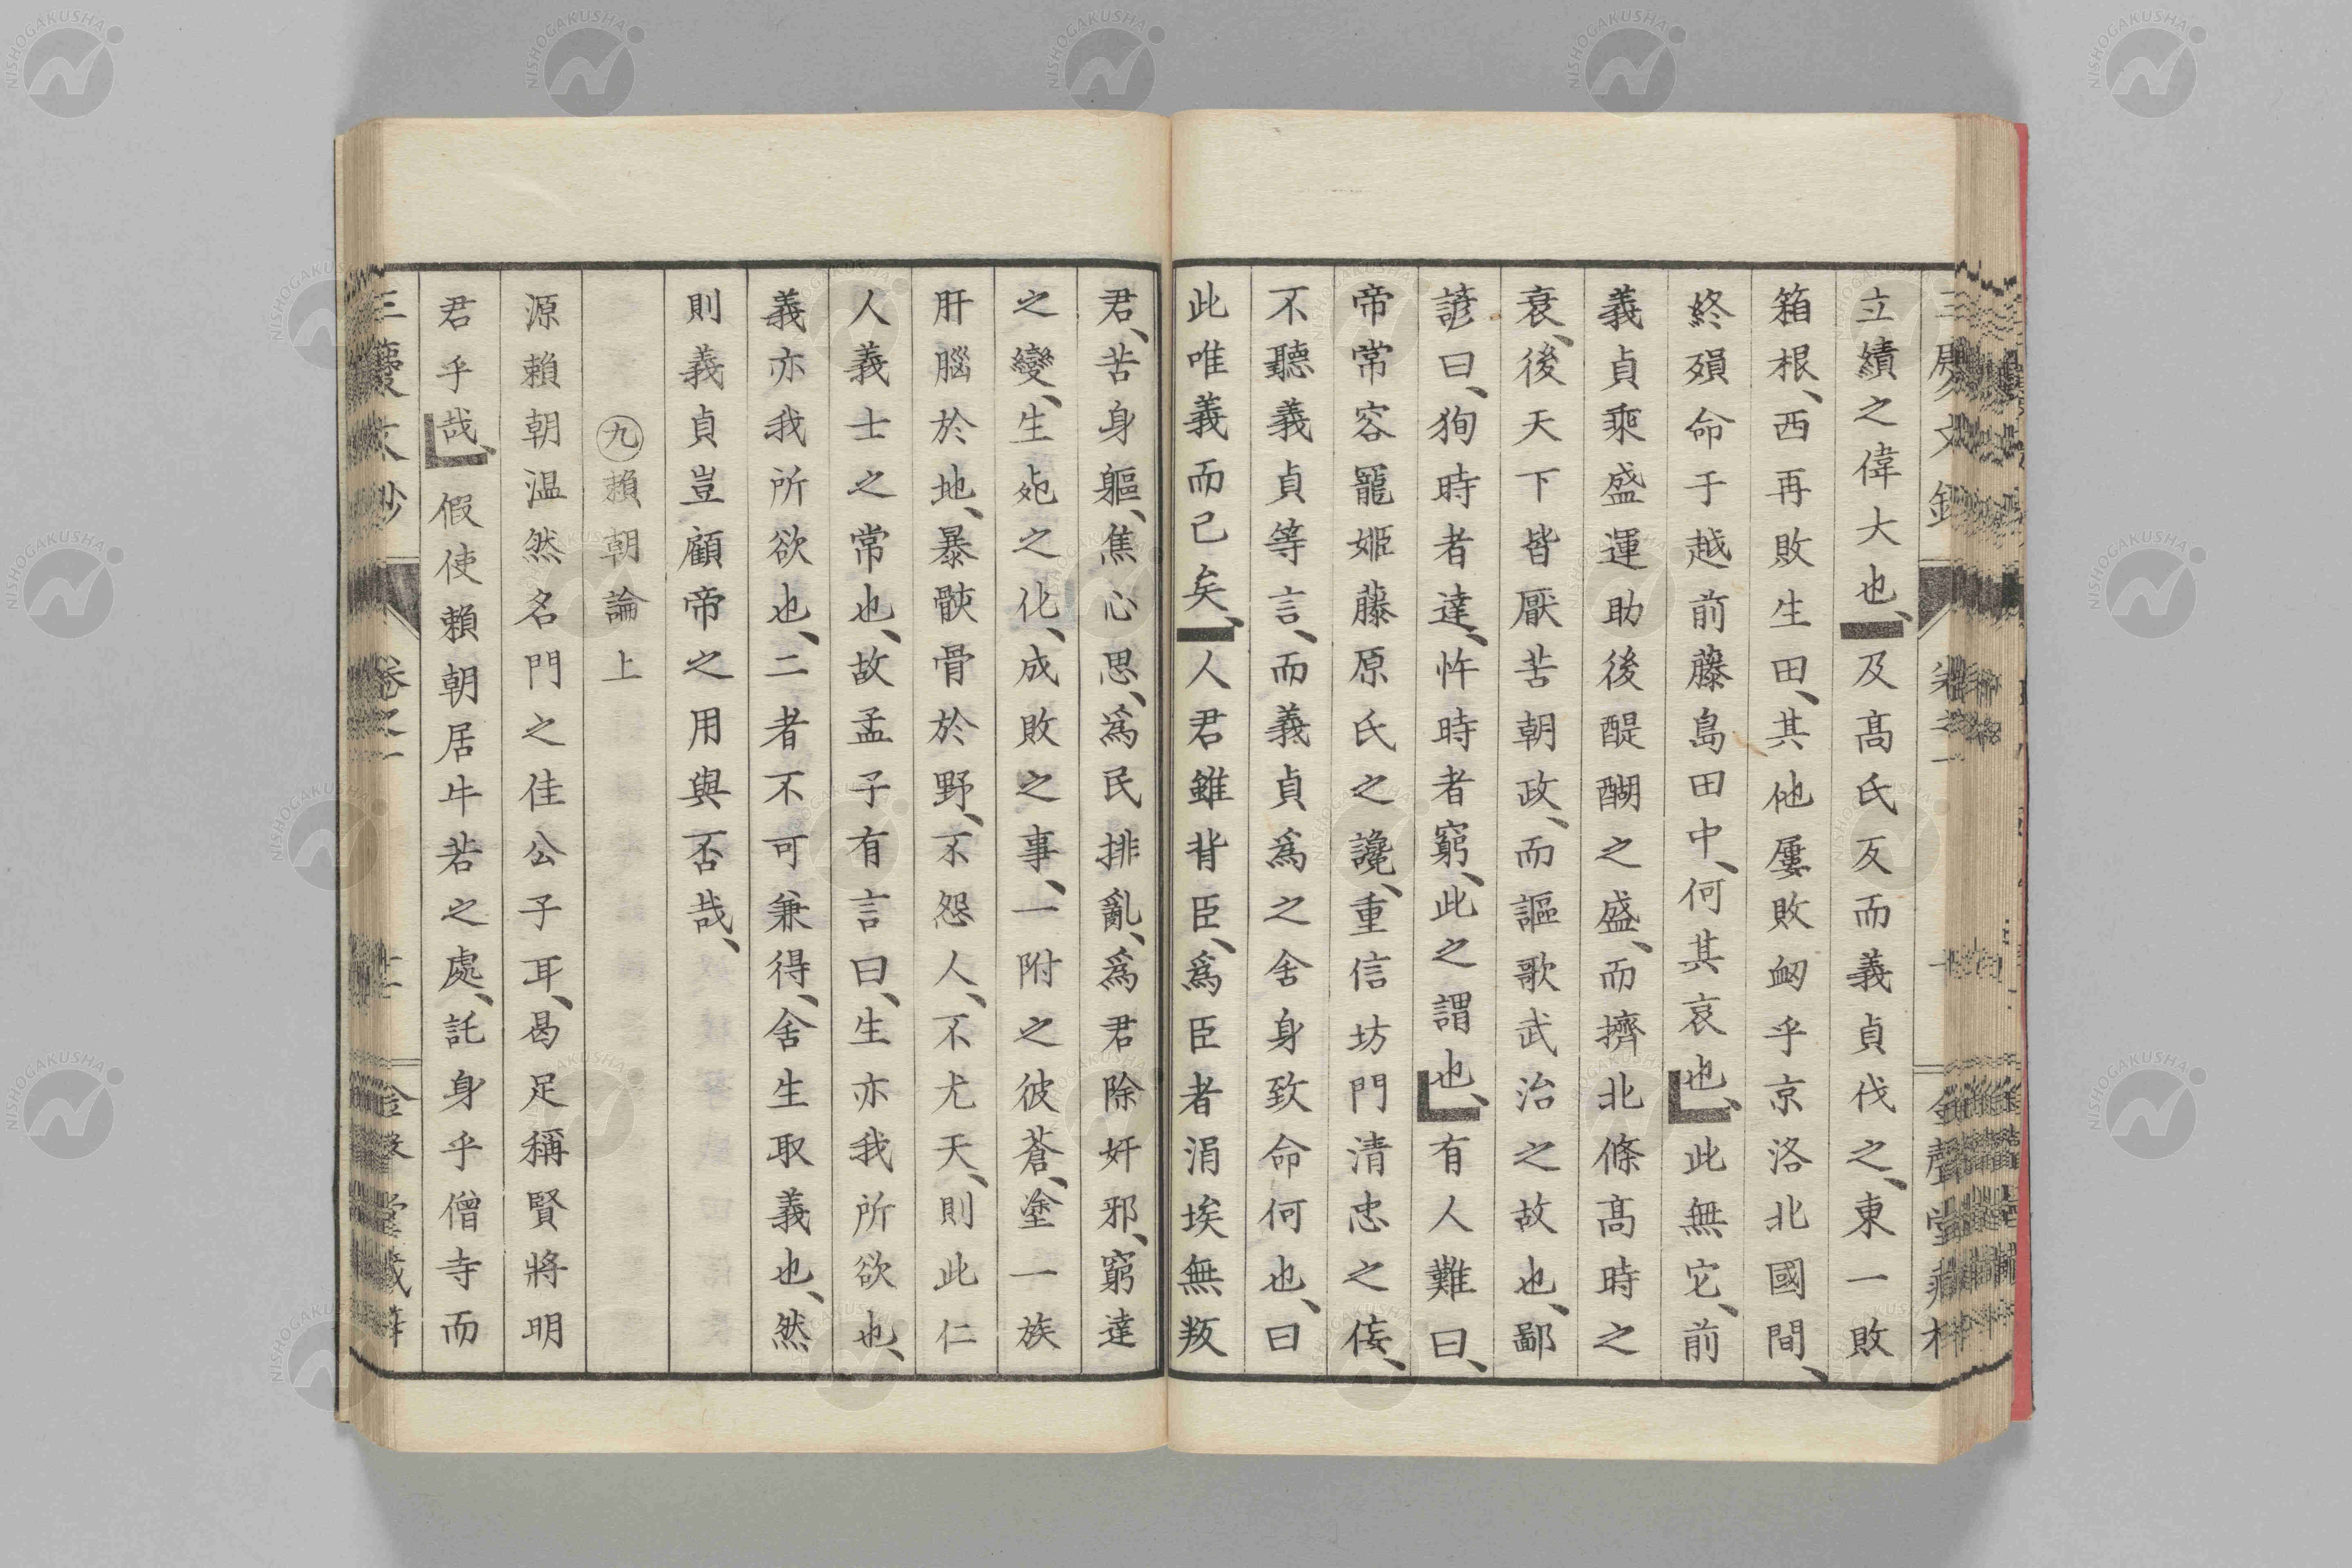 立績之偉大也、及髙氏反而義貞伐之、東一敗
箱根、西再敗生田、其他屢敗衂乎京洛北國間、
終殞命于越前藤島田中、何其哀也、此無它、前
義貞乘盛運助後醍醐之盛、而擠北條髙時之
衰、後天下皆厭苦朝政、而謳歌武治之故也、鄙
諺曰、狥時者達、忤時者窮、此之謂也、有人難曰、
帝常容寵姬藤原氏之讒、重信坊門清忠之侫、
不聽義貞等言、而義貞爲之舍身致命何也、曰
此唯義而已矣、人君雖背臣、爲臣者涓埃無叛
君、苦身軀、焦心思、爲民排亂、爲君除奸邪、窮達
之變、生死之化、成敗之事、一附之彼蒼、塗一族
肝腦於地、暴骸骨於野、不怨人、不尤天、則此仁
人義士之常也、故孟子有言曰、生亦我所欲也、
義亦我所欲也、二者不可兼得、舍生取義也、然
則義貞豈顧帝之用與否哉、
九 賴朝論上
源賴朝温然名門之佳公子耳、曷足稱賢將明
君乎哉、假使賴朝居牛若之處、託身乎僧寺而
NISHOGAKUSHA